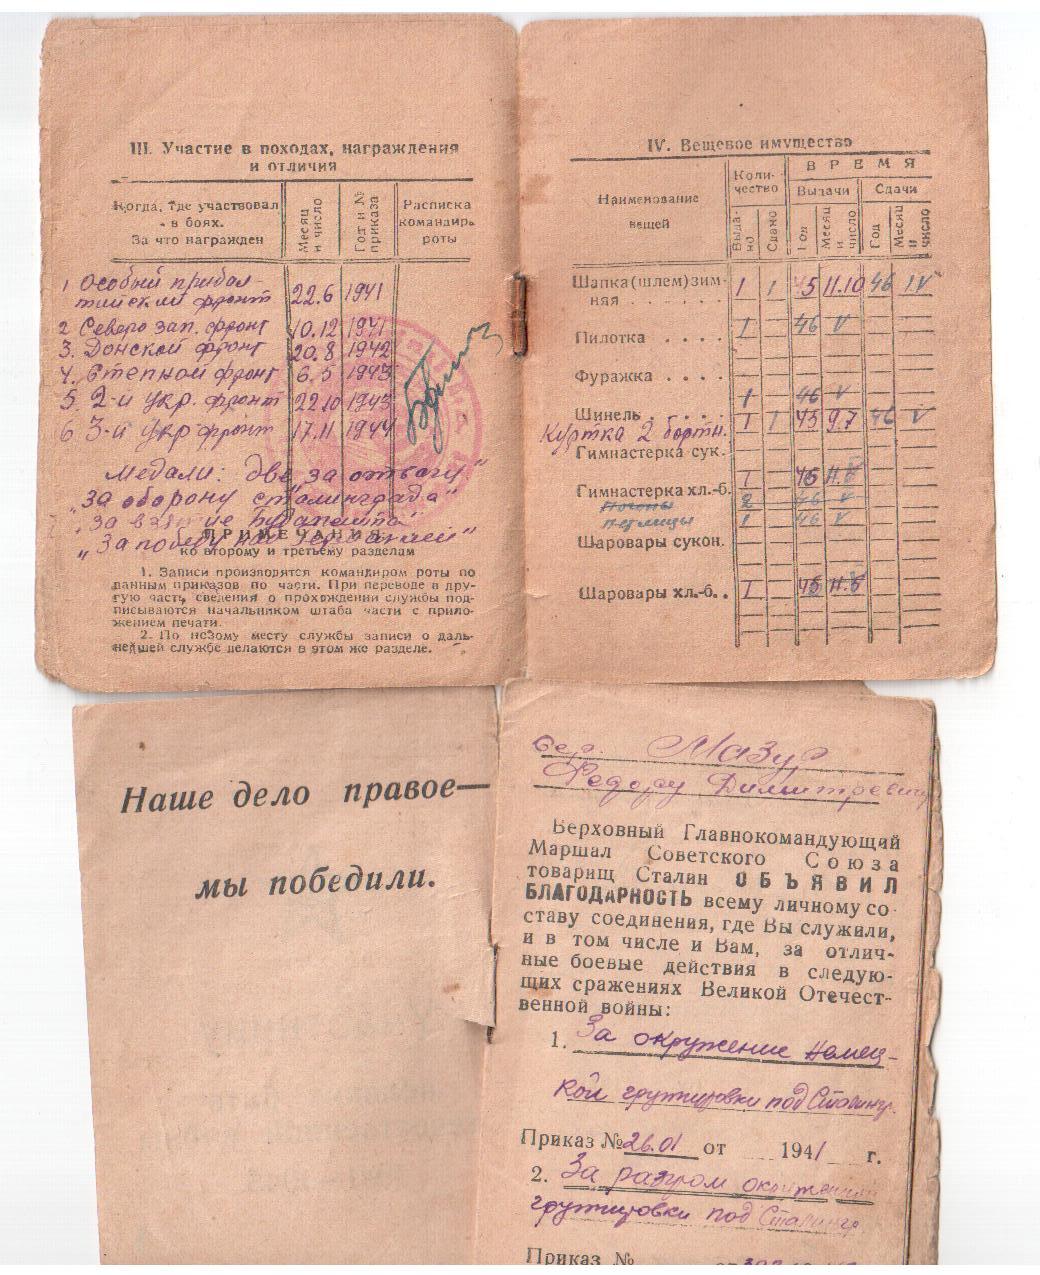 III. Участие в походах, награждения
и отличия
Когда, где участвовал
в боях.
За что награжден
Месяц
и число
Год и №
приказа
Расписка
командира
роты
1 Особый прибал-
тийский фронт 22.6 1941
2 Северо зап. фронт 10.12 1941
3. Донской фронт 20.8 1942
4. Степной фронт 6.5 1943
5. 2-й укр. фронт 22.10 1943
6 3-й укр фронт 17.11 1944
Медали: две „за отвагу"
„За оборону сталинграда"
„За взятие Будапешта"
„За победу над Германией"
ПРИМЕЧАНИЯ
ко второму и третьему разделам
1. Записи производятся командиром роты по
данным приказов по части. При переводе в дру-
гую часть, сведения о прохождении службы под-
писываются начальником штаба части с прило-
жением печати.
2. По новому месту службы записи о даль-
нейшей службе делаются в этом же разделе.
IV. Вещевое имущество
Наименование
вещей
Коли-
чество
ВРЕМЯ
Выдачи
Сдачи
Выда-
но
Сдано
Год
Месяц
и
число
Год
Месяц
и
число
Шапка (шлем) зим-
няя . . . . . . 1 1 45 11.10 46 IV
1 46 V
Пилотка . . . .
Фуражка . . . .
1 46 V
Шинель . . . . 1 1 45 9.7 46 V
Куртка 2 бортн.
Гимнастерка сук.
Гимнастерка хл.-б. 1 46
Погоны 2 46 V
петлицы 1 46 V
Шаровары сукон.
Шаровары хл.-б. . 1
Наше дело правое—
мы победили.
Мазур
Федору Димитревичу
Верховный Главнокомандующий
Маршал Советского Союза
товарищ Сталин ОБЪЯВИЛ
БЛАГОДАРНОСТЬ всему личному со-
ставу соединения, где Вы служили,
и в том числе и Вам, за отлич-
ные боевые действия в следую-
щих сражениях Великой Отечест-
венной войны:
1. За окружение немец-
кой групировки под Сталингр.
Приказ № 26.01 от 1941 г.
2. За разгром
групировки под Сталингр
Приказ №